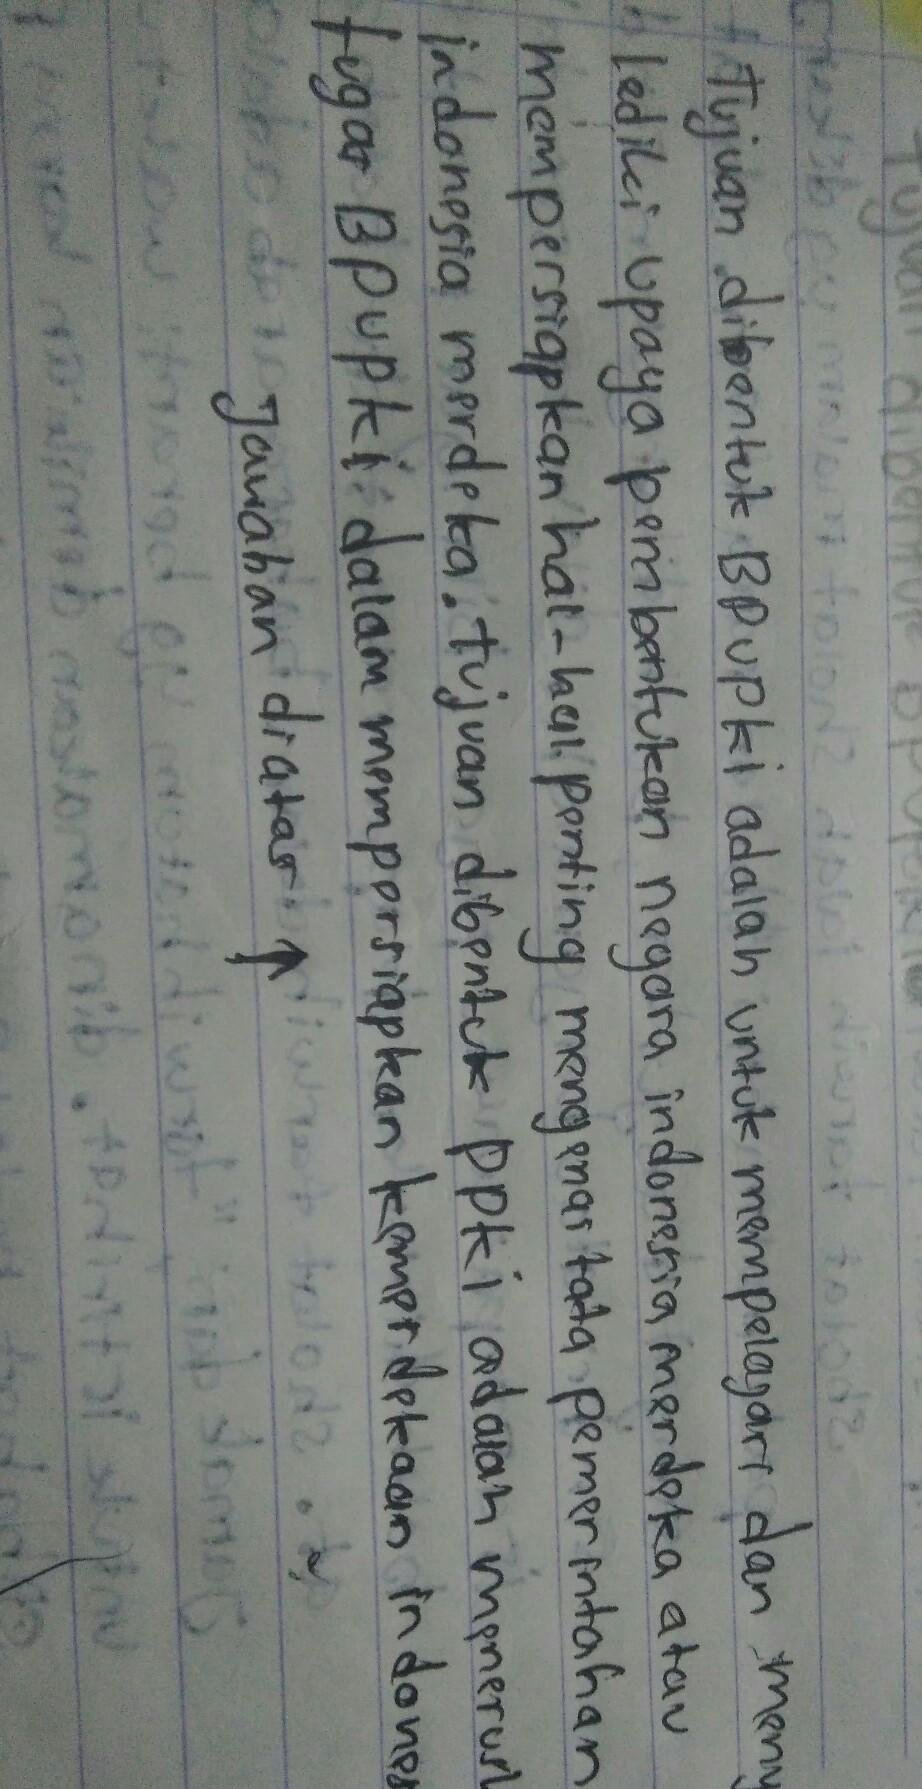 Tujuan dibentuk BPUPKi adalah untuk mempelajari dan meny
lediki upaya pembentukan negara indonesia merdeka atau
mempersiapkan hal-hal penting mengenai tata pemerintahan
indonesia merdeka. tujuan dibentuk PPKi adalah menerusk
tugas BPUPKi dalam mempersiapkan kemerdekaan indones
Jawaban diatas ↑